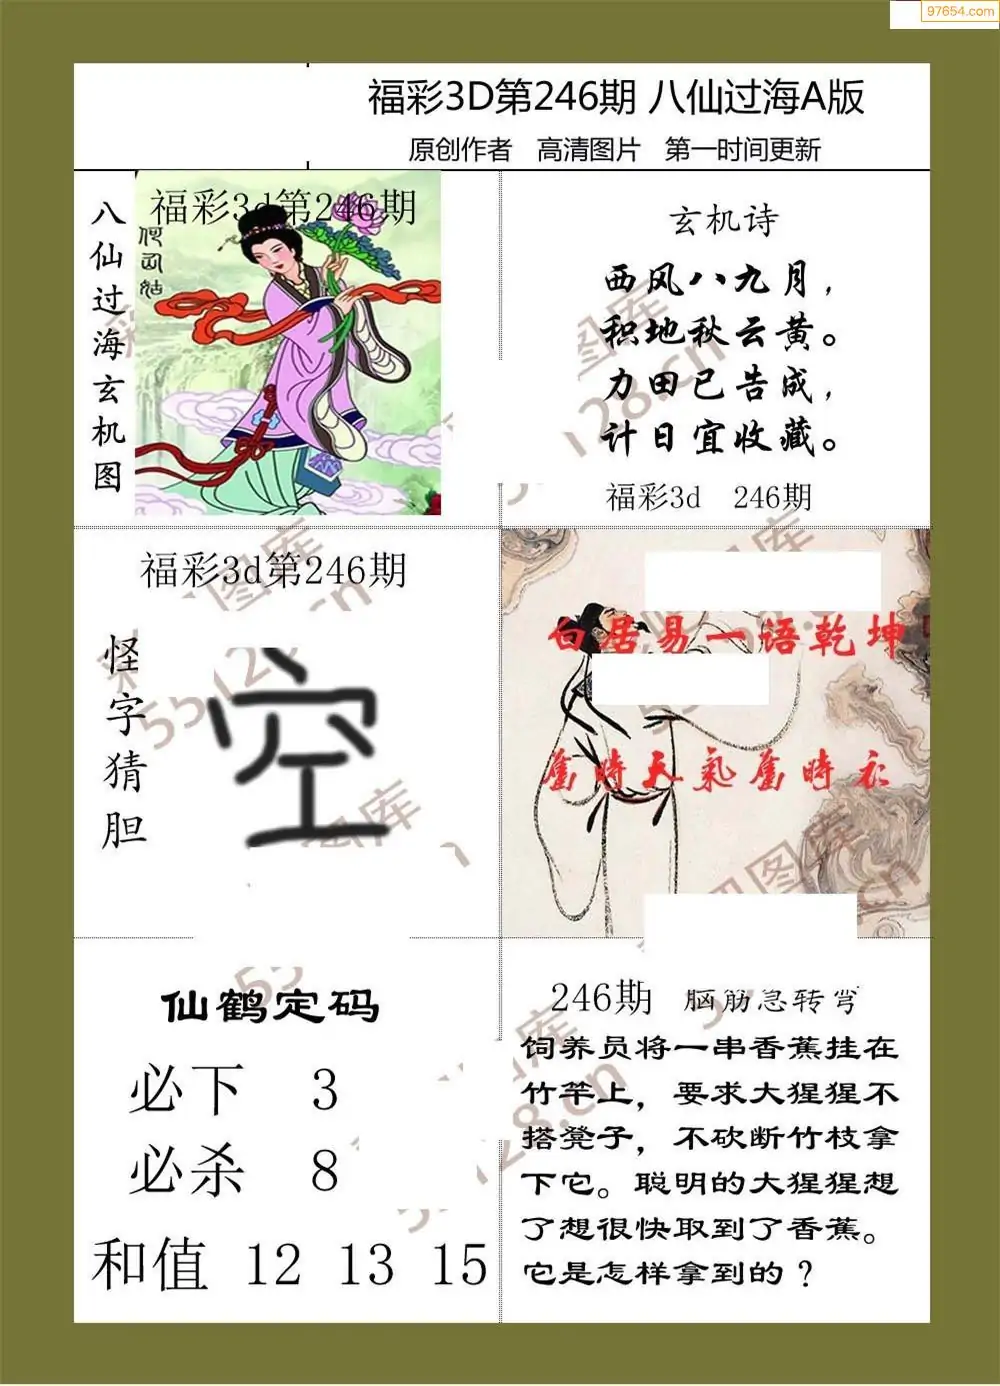 97654.com
福彩3D第246期 八仙过海A版
原创作者 高清图片 第一时间更新
八仙过海玄机图
福彩3d第246期
何仙姑
玄机诗
西风八九月，
积地秋云黄。
力田已告成，
计日宜收藏。
福彩3d 246期
福彩3d第246期
怪字猜胆
空
白居易一语乾坤
旧時天氣旧時衣
仙鹤定码
必下 3
必杀 8
和值 12 13 15
246期 脑筋急转弯
饲养员将一串香蕉挂在
竹竿上，要求大猩猩不
搭凳子，不砍断竹枝拿
下它。聪明的大猩猩想
了想很快取到了香蕉。
它是怎样拿到的？